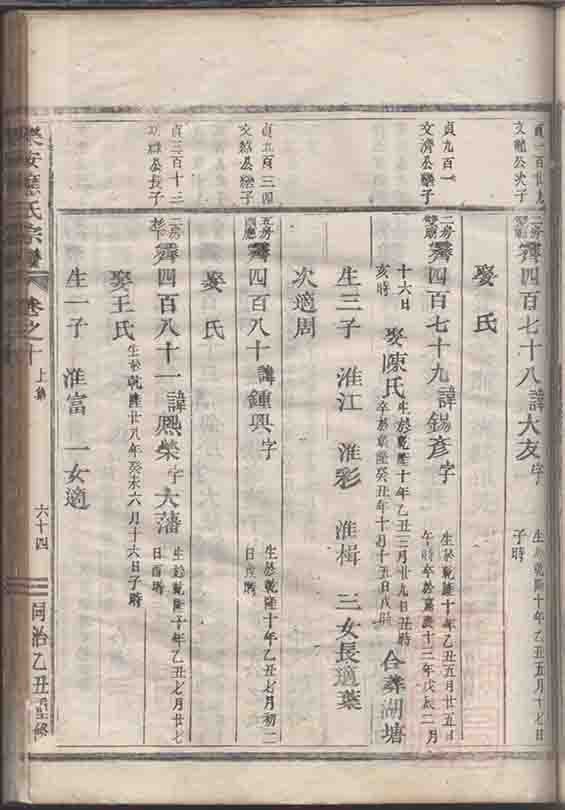 貞一百廿九
文 公次子
二房
霽四百七十八諱大友字
生於乾隆十年乙丑五月十七日
子時
娶 氏
貞九百一
文濟公 子
二房
霽四百七十九諱錫彥字
生於乾隆十年乙丑五月廿五日
午時卒於嘉慶十三年戊辰二月
十六日
亥時
娶陳氏
生於乾隆十年乙丑三月廿九日丑時
卒於乾隆癸丑年十月十五日戌時
合葬湖塘
生三子 淮江 淮彩 淮楫 三女長適葉
次適周
貞九百三四
文 公 子
五房
霽四百八十諱鍾興字
生於乾隆十年乙丑七月初二
日戌時
娶 氏
貞三百十二
公長子
二房
霽四百八十一諱熙榮字大藩
生於乾隆十年乙丑七月廿七
日酉時
娶王氏
生於乾隆廿八年癸未六月十六日子時
生一子 淮富 一女適
樂安 氏宗譜
卷之十
上集
六十四
同治乙丑重修